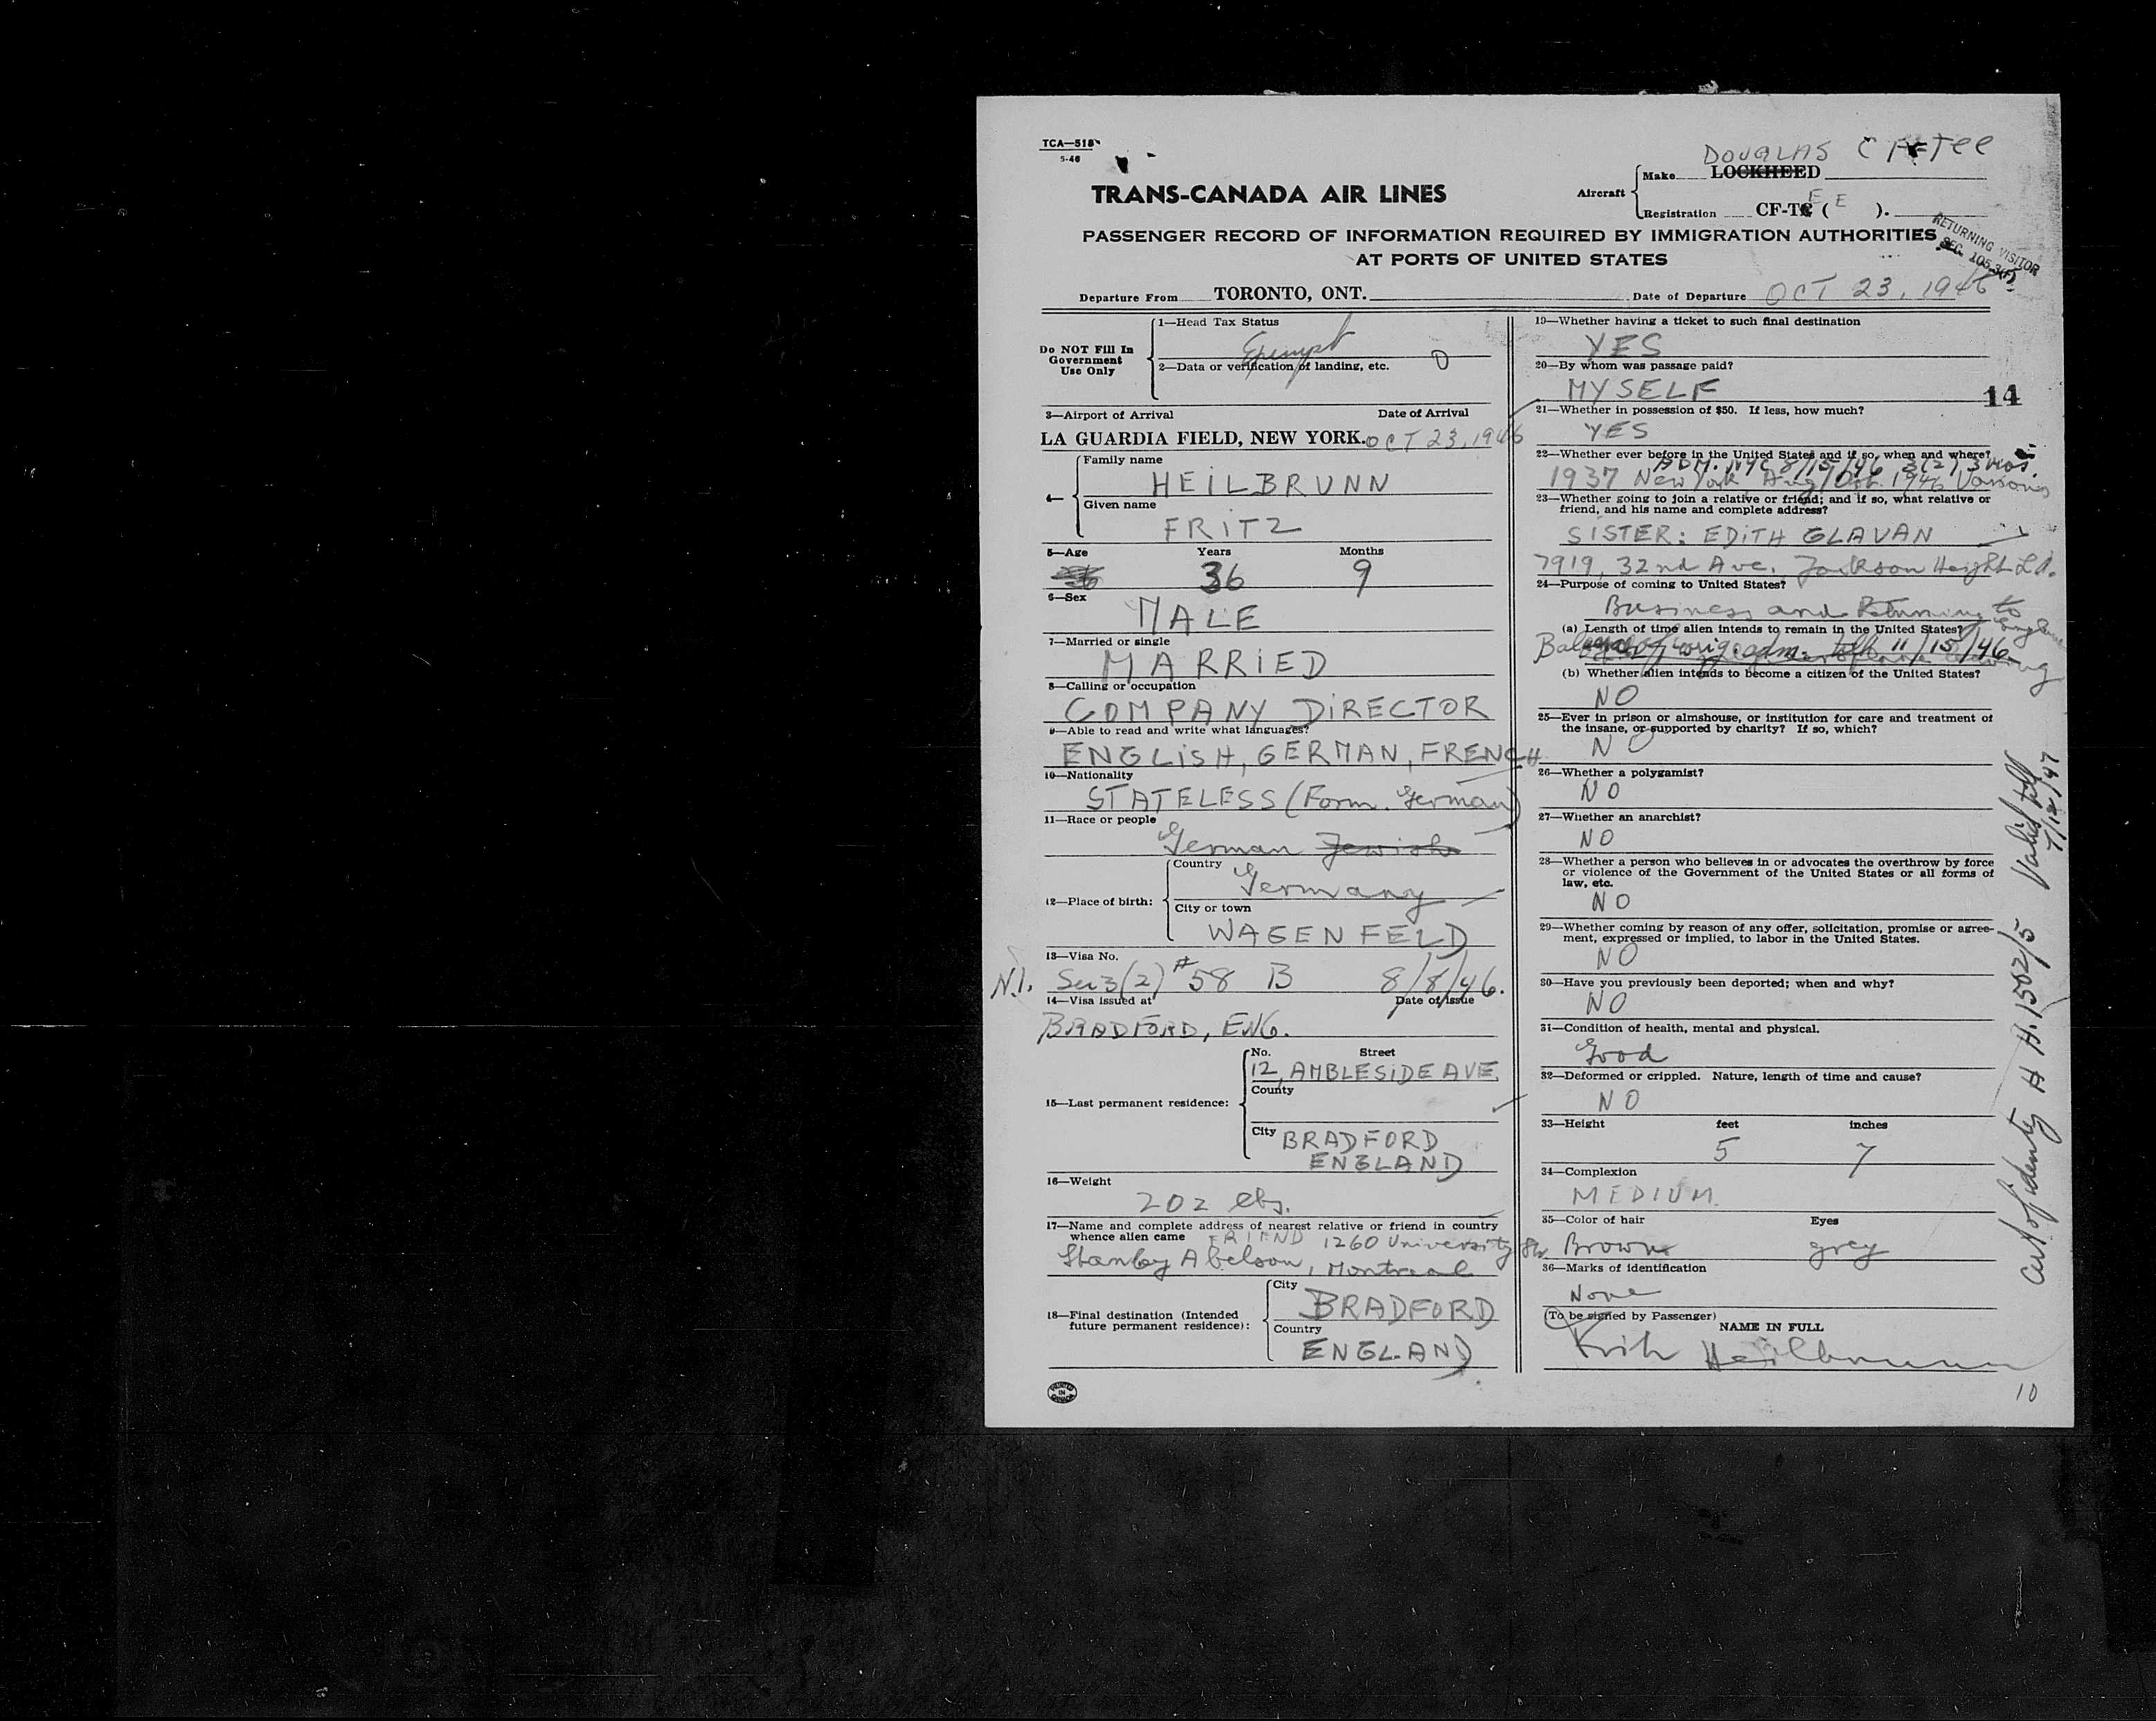 TCA—518
5-46
DOUGLAS CF-TEE
TRANS-CANADA AIR LINES
Aircraft
Make LOCKHEED
Registration CF-TC ( E E ).
PASSENGER RECORD OF INFORMATION REQUIRED BY IMMIGRATION AUTHORITIES
AT PORTS OF UNITED STATES
RETURNING VISITOR
SEC. 105.3(F)
Departure From TORONTO, ONT. Date of Departure OCT 23, 1946
Do NOT Fill In
Government
Use Only
1—Head Tax Status
Exempt
2—Data or verification of landing, etc. 0
3—Airport of Arrival Date of Arrival
LA GUARDIA FIELD, NEW YORK. OCT 23, 1946
4—
Family name
HEILBRUNN
Given name
FRITZ
5—Age Years Months
36 9
6—Sex
MALE
7—Married or single
MARRIED
8—Calling or occupation
COMPANY DIRECTOR
9—Able to read and write what languages?
ENGLISH, GERMAN, FRENCH
10—Nationality
STATELESS (Form. German)
11—Race or people
German Jewish
12—Place of birth:
Country
Germany
City or town
WAGENFELD
13—Visa No.
N.I. Sec 3(2) # 58 B 8/8/46.
14—Visa issued at Date of issue
BRADFORD, ENG.
15—Last permanent residence:
No. Street
12, AMBLESIDE AVE
County
City BRADFORD
ENGLAND
16—Weight
202 lbs.
17—Name and complete address of nearest relative or friend in country
whence alien came FRIEND 1260 University Str.
Stanley Abelson, Montreal
18—Final destination (Intended
future permanent residence):
City
BRADFORD
Country
ENGLAND
PRINTED
IN
CANADA
19—Whether having a ticket to such final destination
YES
20—By whom was passage paid?
MYSELF
14
21—Whether in possession of $50. If less, how much?
YES
22—Whether ever before in the United States and if so, when and where?
ADM. NYC 8/15/46 3(2) 3 mos.
1937 New York Aug/Oct. 1946 Various
23—Whether going to join a relative or friend; and if so, what relative or
friend, and his name and complete address?
SISTER: EDITH GLAVAN
7919, 32nd Ave. Jackson Height L.I.
24—Purpose of coming to United States?
Business and Returning to England
(a) Length of time alien intends to remain in the United States?
Balance of orig. adm. till 11/15/46
(b) Whether alien intends to become a citizen of the United States?
NO
25—Ever in prison or almshouse, or institution for care and treatment of
the insane, or supported by charity? If so, which?
NO
26—Whether a polygamist?
NO
27—Whether an anarchist?
NO
28—Whether a person who believes in or advocates the overthrow by force
or violence of the Government of the United States or all forms of
law, etc.
NO
29—Whether coming by reason of any offer, solicitation, promise or agree-
ment, expressed or implied, to labor in the United States.
NO
30—Have you previously been deported; when and why?
NO
31—Condition of health, mental and physical.
Good
32—Deformed or crippled. Nature, length of time and cause?
NO
33—Height feet inches
5 7
34—Complexion
MEDIUM
35—Color of hair Eyes
Brown grey
36—Marks of identification
None
(To be signed by Passenger)
NAME IN FULL
Fritz Heilbrunn
10
Cert of identity H H.1502/5 Valid till
7/12/47